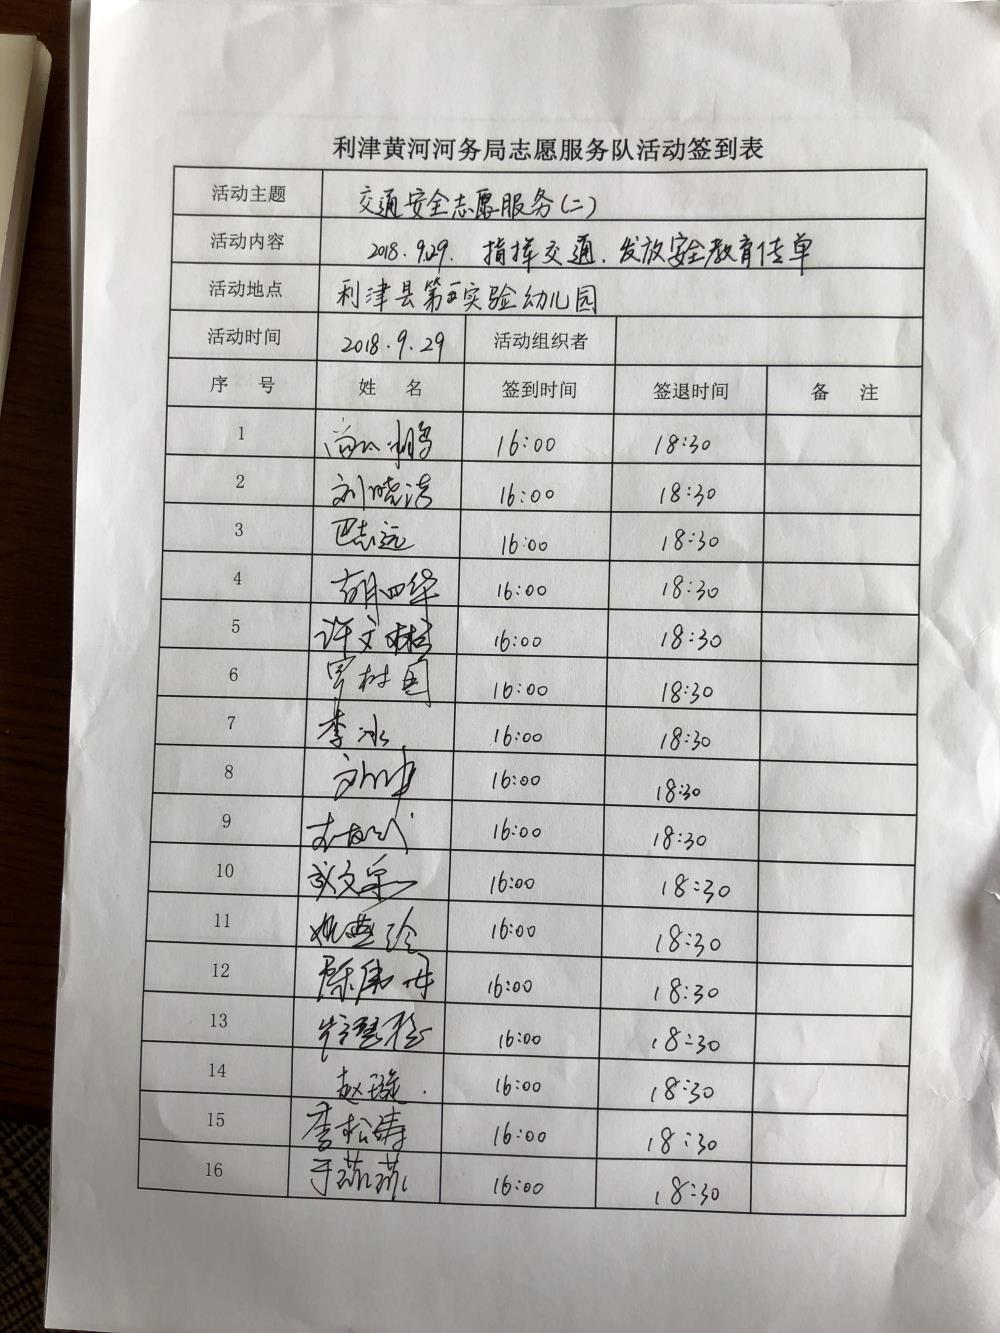 利津黄河河务局志愿服务队活动签到表
活动主题 交通安全志愿服务(二)
活动内容 2018.9.29. 指挥交通、发放安全教育传单
活动地点 利津县第五实验幼儿园
活动时间 2018.9.29 活动组织者
序 号 姓 名 签到时间 签退时间 备 注
1 16:00 18:30
2 刘晓浩 16:00 18:30
3 巴志远 16:00 18:30
4 胡四华 16:00 18:30
5 许文 16:00 18:30
6 罗树国 16:00 18:30
7 李冰 16:00 18:30
8 16:00 18:30
9 16:00 18:30
10 16:00 18:30
11 16:00 18:30
12 16:00 18:30
13 16:00 18:30
14 赵璇. 16:00 18:30
15 李松涛 16:00 18:30
16 于菲菲 16:00 18:30